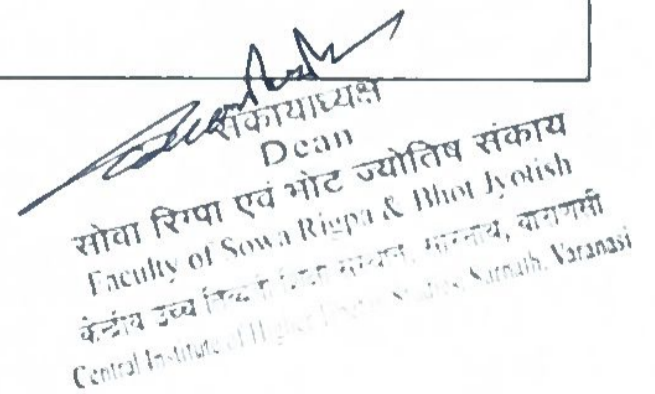 संकायाध्यक्ष
Dean
सोवा रिग्पा एवं भोट ज्योतिष संकाय
Faculty of Sowa Rigpa & Bhot Jyotish
केन्द्रीय उच्च तिब्बती शिक्षा संस्थान, सारनाथ, वाराणसी
Central Institute of Higher Tibetan Studies, Sarnath, Varanasi